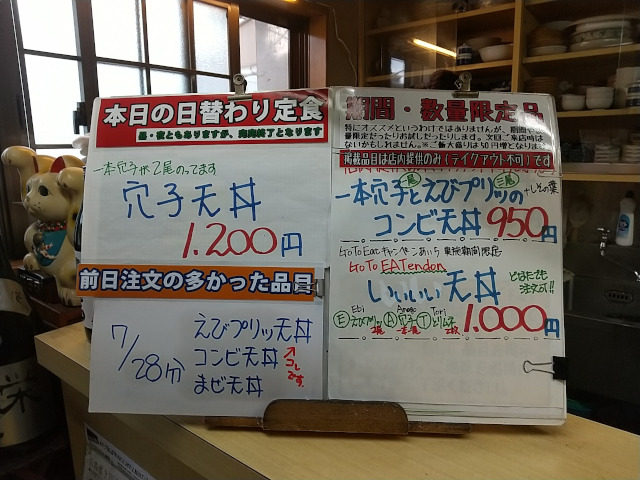 本日の日替わり定食
昼・夜ともありますが、完売終了となります
一本穴子が2尾のってます
穴子天丼
1.200円
前日注文の多かった品目
7/28分
えびプリッツ天丼
コンビ天丼
まぜ天丼
コレです
期間・数量限定品
特にオススメというわけではありませんが、期間や
数量限定だったりお試しだったりします。次回ご来店時は
ないかもしれません。※ご飯大盛りは50円増となります
掲載品目は店内提供のみ(テイクアウト不可)です
一本穴子とえびプリッツの
一尾
三尾
+しその葉
コンビ天丼 950円
Go To Eatキャンペーンあいち 実施期間限定
Go To EATendon
いいいい天丼
どなたでも
注文可!!
1.000円
Ebi
Anago
Tori
E えびプリッツ
A 穴子
T とりムネ